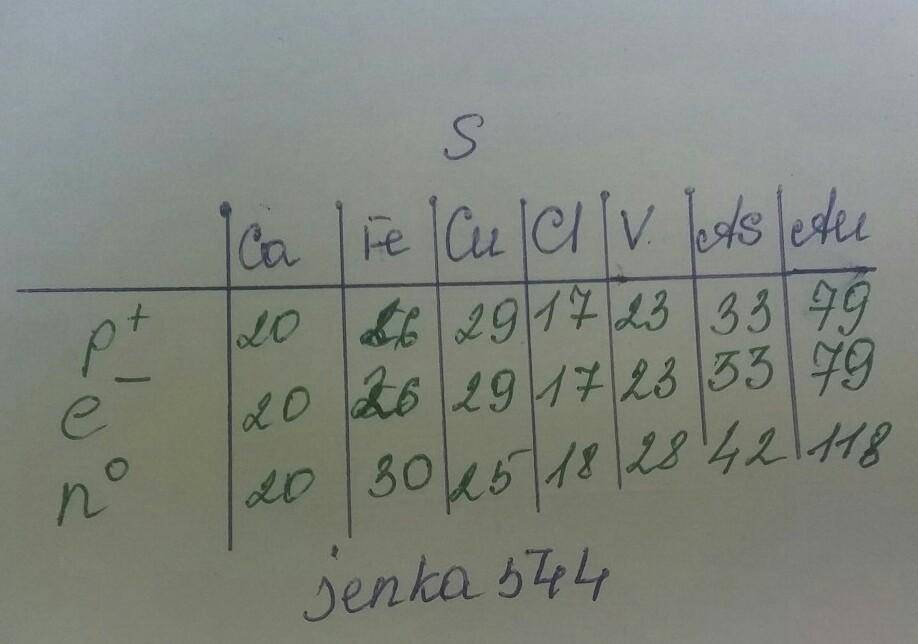 S
Ca Fe Cu Cl V. As Au
p+ 20 26 29 17 23 33 79
e− 20 26 29 17 23 33 79
n⁰ 20 30 25 18 28 42 118
jenka 544